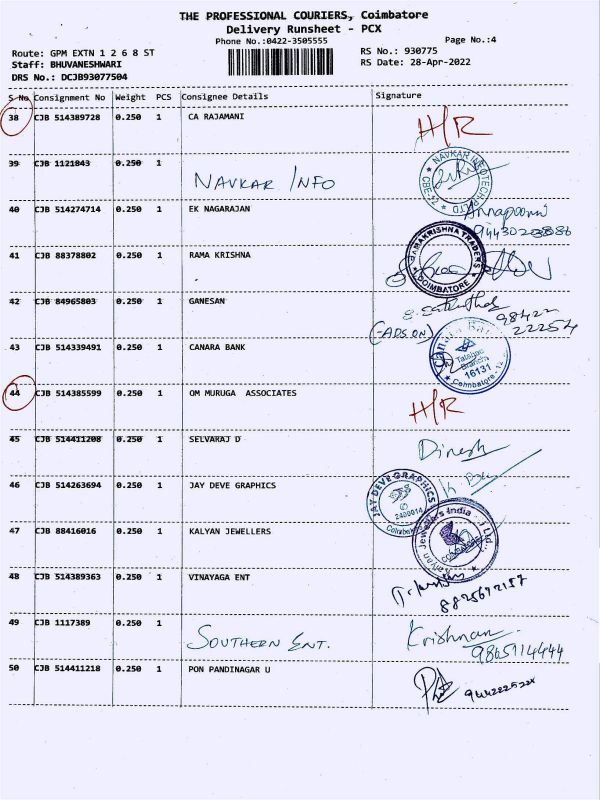 THE PROFESSIONAL COURIERS, Coimbatore
Delivery Runsheet - PCX
Phone No.:0422-3505555
Page No.:4
Route: GPM EXTN 1 2 6 8 ST
RS No.: 930775
Staff: BHUVANESHWARI
RS Date: 28-Apr-2022
DRS No.: DCJB93077504
S No Consignment No Weight PCS Consignee Details Signature
38 CJB 514389728 0.250 1 CA RAJAMANI
H/R
39 CJB 1121843 0.250 1 NAVKAR INFO
NAVKAR INFOTECH P LTD CBE-12
40 CJB 514274714 0.250 1 EK NAGARAJAN
Annapoorni
41 CJB 88378802 0.250 1 RAMA KRISHNA
RAMAKRISHNA TRADERS COIMBATORE
42 CJB 84965803 0.250 1 GANESAN
98422
22254
43 CJB 514339491 0.250 1 CANARA BANK
Canara Bank
Branch
16131
Coimbatore - 12
44 CJB 514385599 0.250 1 OM MURUGA ASSOCIATES
H/R
45 CJB 514411208 0.250 1 SELVARAJ D
Dinesh
46 CJB 514263694 0.250 1 JAY DEVE GRAPHICS
JAY DEVE GRAPHICS
2400014
47 CJB 88416016 0.250 1 KALYAN JEWELLERS
Kalyan Jewellers India Ltd.
48 CJB 514389363 0.250 1 VINAYAGA ENT
8825672157
49 CJB 1117389 0.250 1 SOUTHERN ENT.
Krishnan
9865114444
50 CJB 514411218 0.250 1 PON PANDINAGAR U
9442225224